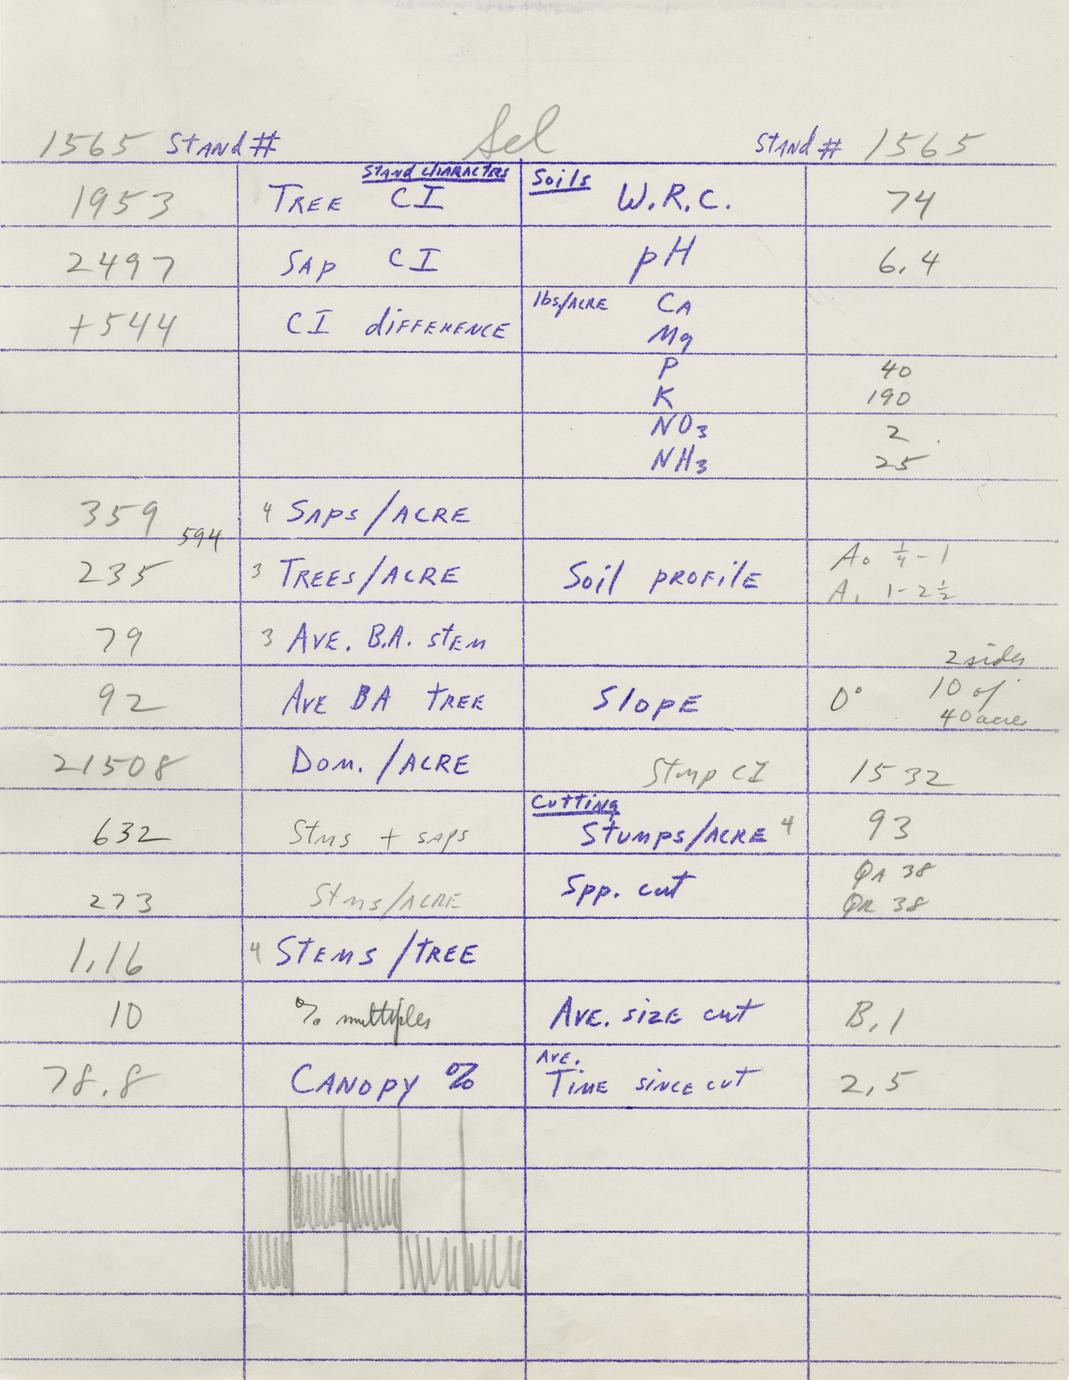 1565 Stand # Sel Stand # 1565
Stand Characters Soils
1953 Tree CI W.R.C. 74
2497 Sap CI pH 6.4
+544 CI difference lbs/Acre Ca
Mg
P 40
K 190
NO3 2
NH3 25
359 4 Saps/Acre
594
235 3 Trees/Acre Soil profile A0 1/4-1
A1 1-2 1/2
79 3 Ave. B.A. stem
92 Ave BA tree Slope 0° 2 sides
10 of
40 acres
21508 Dom./Acre Stmp CI 1532
Cutting
632 Stms + saps Stumps/Acre 4 93
273 Stms/Acre Spp. cut QA 38
QR 38
1.16 4 Stems/tree
10 % multiples Ave. size cut B.1
78.8 Canopy % Ave.
Time since cut 2.5